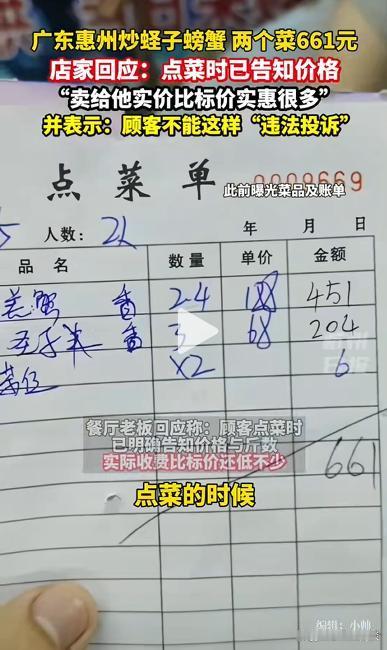 广东惠州炒蛏子螃蟹 两个菜661元
店家回应：点菜时已告知价格
“卖给他实价比标价实惠很多”
并表示：顾客不能这样“违法投诉”
点菜单 0009669
此前曝光菜品及账单
人数：2人 年 月 日
品名 数量 单价 金额
羔蟹 香 2.4 188 451
香 3 68 204
茶位 X2 6
661
餐厅老板回应称：顾客点菜时
已明确告知价格与斤数
实际收费比标价还低不少
点菜的时候
编辑：小帅